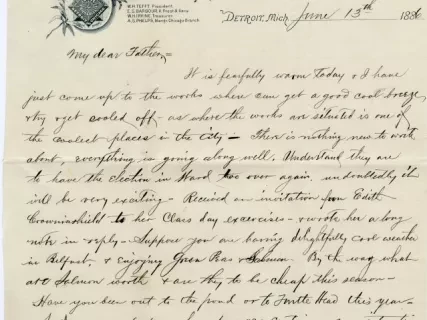 W.H. TEFFT, President
E.C. BARBOUR, V. Prest & Sec'y
W.H. PRINE, Treasurer
A.G. PHELPS, Man'gr Chicago Branch
DETROIT, Mich. June 13th 1886
My dear Father,=
It is fearfully warm today & I have
just come up to the works where can get a good cool breeze,
& try & get cooled off, as where the works are situated is one of
the coolest places in the city – There is nothing new to write
about, everything is going along well. Understand they are
to have the election in Ward two over again, undoubtedly it
will be very exciting – Received an invitation from Edith
Crowninshield to her Class day exercises – & wrote her a long
note in reply – Suppose you are having delightfully cool weather
in Belfast, & enjoying Green Peas & Salmon. By the way what
are Salmon worth & are they to be cheap this season –
Have you been out to the pond or to Turtle Head this year –